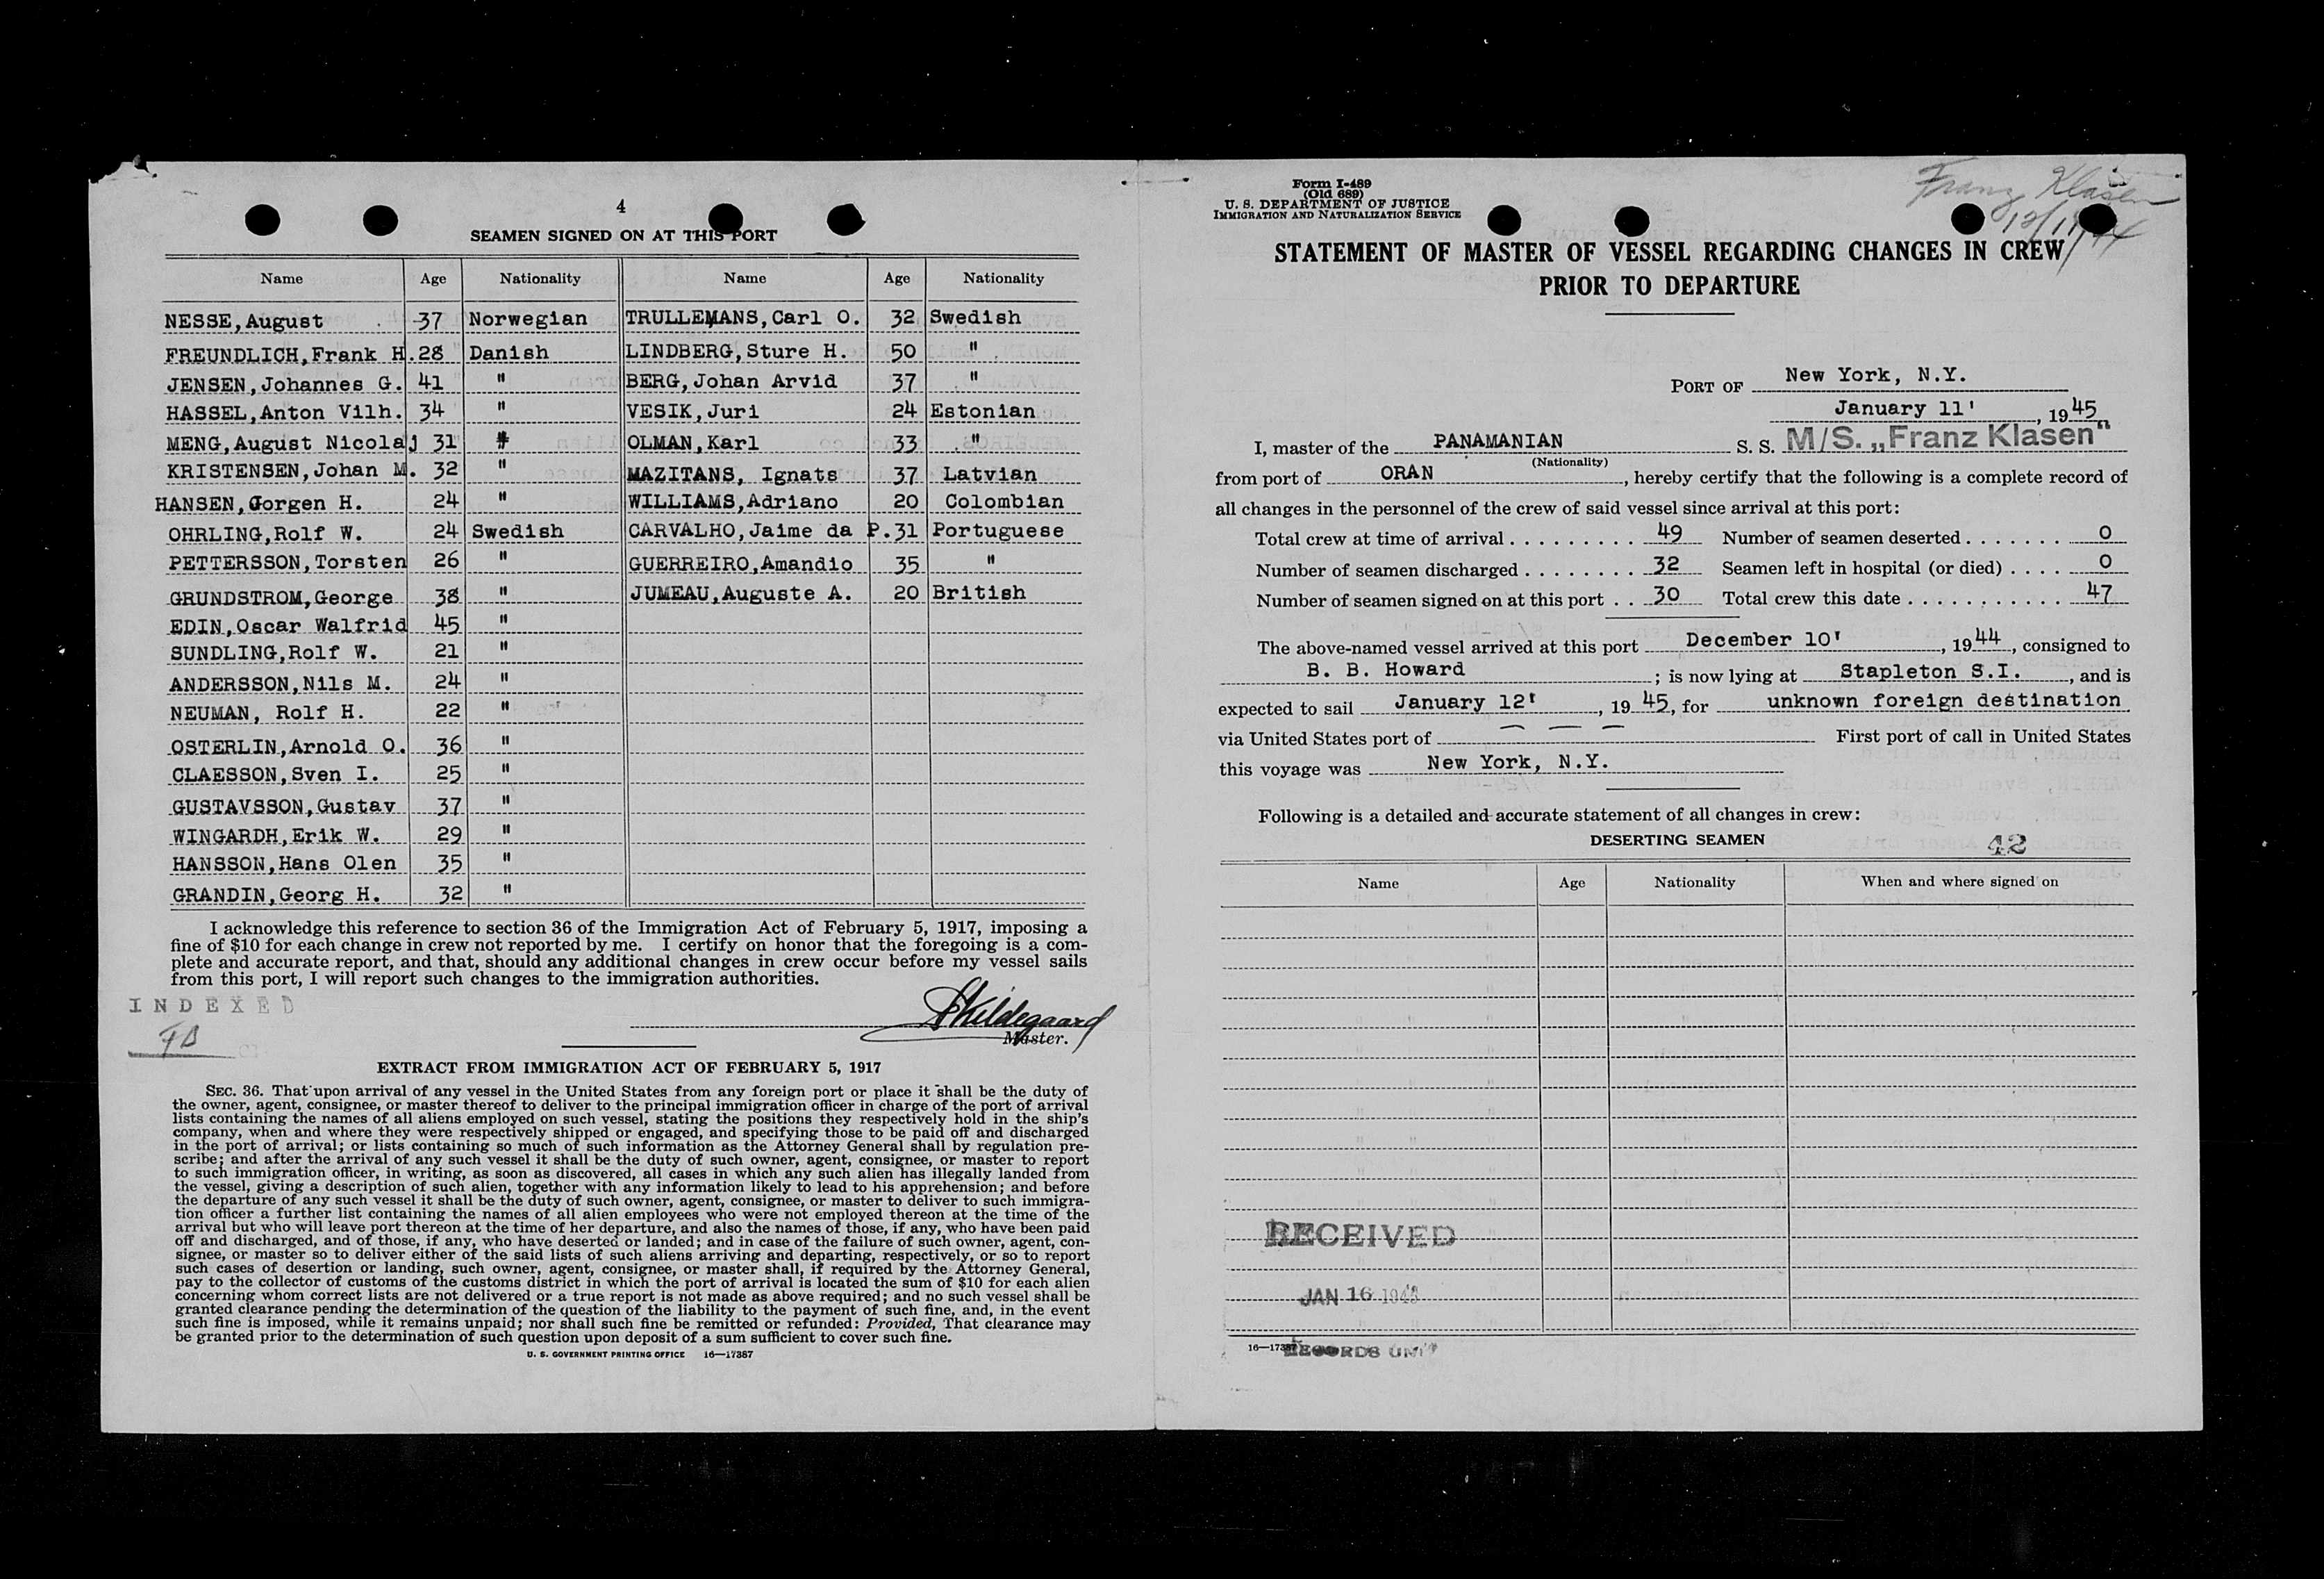 4
SEAMEN SIGNED ON AT THIS PORT
Name Age Nationality Name Age Nationality
NESSE, August 37 Norwegian TRULLEMANS, Carl O. 32 Swedish
FREUNDLICH, Frank H. 28 Danish LINDBERG, Sture H. 50 "
JENSEN, Johannes G. 41 " BERG, Johan Arvid 37 "
HASSEL, Anton Vilh. 34 " VESIK, Juri 24 Estonian
MENG, August Nicolaj 31 " OLMAN, Karl 33 "
KRISTENSEN, Johan M. 32 " MAZITANS, Ignats 37 Latvian
HANSEN, Gorgen H. 24 " WILLIAMS, Adriano 20 Colombian
OHRLING, Rolf W. 24 Swedish CARVALHO, Jaime da P. 31 Portuguese
PETTERSSON, Torsten 26 " GUERREIRO, Amandio 35 "
GRUNDSTROM, George 38 " JUMEAU, Auguste A. 20 British
EDIN, Oscar Walfrid 45 "
SUNDLING, Rolf W. 21 "
ANDERSSON, Nils M. 24 "
NEUMAN, Rolf H. 22 "
OSTERLIN, Arnold O. 36 "
CLAESSON, Sven I. 25 "
GUSTAVSSON, Gustav 37 "
WINGARDH, Erik W. 29 "
HANSSON, Hans Olen 35 "
GRANDIN, Georg H. 32 "
I acknowledge this reference to section 36 of the Immigration Act of February 5, 1917, imposing a
fine of $10 for each change in crew not reported by me. I certify on honor that the foregoing is a com-
plete and accurate report, and that, should any additional changes in crew occur before my vessel sails
from this port, I will report such changes to the immigration authorities.
INDEXED
Master.
EXTRACT FROM IMMIGRATION ACT OF FEBRUARY 5, 1917
SEC. 36. That upon arrival of any vessel in the United States from any foreign port or place it shall be the duty of
the owner, agent, consignee, or master thereof to deliver to the principal immigration officer in charge of the port of arrival
lists containing the names of all aliens employed on such vessel, stating the positions they respectively hold in the ship's
company, when and where they were respectively shipped or engaged, and specifying those to be paid off and discharged
in the port of arrival; or lists containing so much of such information as the Attorney General shall by regulation pre-
scribe; and after the arrival of any such vessel it shall be the duty of such owner, agent, consignee, or master to report
to such immigration officer, in writing, as soon as discovered, all cases in which any such alien has illegally landed from
the vessel, giving a description of such alien, together with any information likely to lead to his apprehension; and before
the departure of any such vessel it shall be the duty of such owner, agent, consignee, or master to deliver to such immigra-
tion officer a further list containing the names of all alien employees who were not employed thereon at the time of the
arrival but who will leave port thereon at the time of her departure, and also the names of those, if any, who have been paid
off and discharged, and of those, if any, who have deserted or landed; and in case of the failure of such owner, agent, con-
signee, or master so to deliver either of the said lists of such aliens arriving and departing, respectively, or so to report
such cases of desertion or landing, such owner, agent, consignee, or master shall, if required by the Attorney General,
pay to the collector of customs of the customs district in which the port of arrival is located the sum of $10 for each alien
concerning whom correct lists are not delivered or a true report is not made as above required; and no such vessel shall be
granted clearance pending the determination of the question of the liability to the payment of such fine, and, in the event
such fine is imposed, while it remains unpaid; nor shall such fine be remitted or refunded: Provided, That clearance may
be granted prior to the determination of such question upon deposit of a sum sufficient to cover such fine.
U. S. GOVERNMENT PRINTING OFFICE 16—17387
Form I-489
(Old 689)
U. S. DEPARTMENT OF JUSTICE
IMMIGRATION AND NATURALIZATION SERVICE
Franz Klasen
STATEMENT OF MASTER OF VESSEL REGARDING CHANGES IN CREW
PRIOR TO DEPARTURE
PORT OF New York, N.Y.
January 11', 1945
I, master of the PANAMANIAN S. S. M/S. „Franz Klasen"
(Nationality)
from port of ORAN, hereby certify that the following is a complete record of
all changes in the personnel of the crew of said vessel since arrival at this port:
Total crew at time of arrival . . . . . . . . . 49 Number of seamen deserted . . . . . . . 0
Number of seamen discharged . . . . . . . . 32 Seamen left in hospital (or died) . . . . 0
Number of seamen signed on at this port . . 30 Total crew this date . . . . . . . . . . . . 47
The above-named vessel arrived at this port December 10', 1944, consigned to
B. B. Howard; is now lying at Stapleton S.I., and is
expected to sail January 12', 1945, for unknown foreign destination
via United States port of — — — First port of call in United States
this voyage was New York, N.Y.
Following is a detailed and accurate statement of all changes in crew:
DESERTING SEAMEN 42
Name Age Nationality When and where signed on
RECEIVED
JAN 16 1945
16—17387
RECORDS UNIT